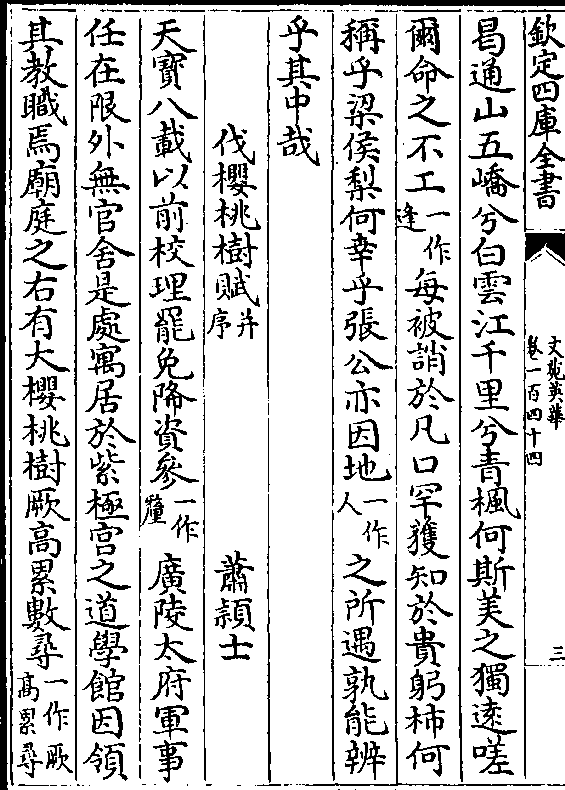 欽定四庫全書
文苑英華
卷一百四十四
三
曷通山五嶠兮白雲江千里兮青楓何斯美之獨遠嗟
爾命之不工一作逢每被誚於凡口罕獲知於貴躬柿何
稱乎梁侯梨何幸乎張公亦因地一作人之所遇孰能辨
乎其中哉
伐櫻桃樹賦并序 蕭穎士
天寶八載以前校理罷免降資參一作廣陵太府軍事
任在限外無官舍是處寓居於紫極宮之道學館因領
其教職焉廟庭之右有大櫻桃樹厥高累數尋一作厥高累尋